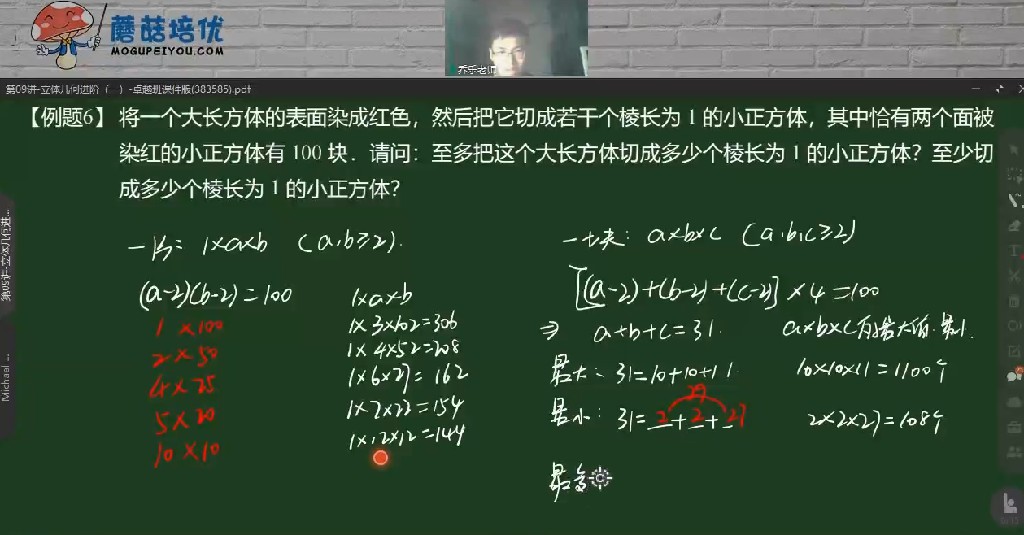 蘑菇培优
MOGUPEIYOU.COM
乔乐老师
第09讲-立体几何进阶（一）-卓越班课件版(383585).pdf
【例题6】将一个大长方体的表面染成红色，然后把它切成若干个棱长为 1 的小正方体，其中恰有两个面被
染红的小正方体有 100 块．请问：至多把这个大长方体切成多少个棱长为 1 的小正方体？至少切
成多少个棱长为 1 的小正方体？
1×a×b (a,b≥2).
(a-2)(b-2)=100
1×100
2×50
4×25
5×20
10×10
1×a×b
1×3×102=306
1×4×52=208
1×6×27=162
1×7×22=154
1×12×12=144
a×b×c (a,b,c≥2)
[(a-2)+(b-2)+(c-2)]×4=100
⇒ a+b+c=31.
最大：31=10+10+11
10×10×11=1100个
29
最小：31=2+2+27
2×2×27=108个
最多
Michael ...